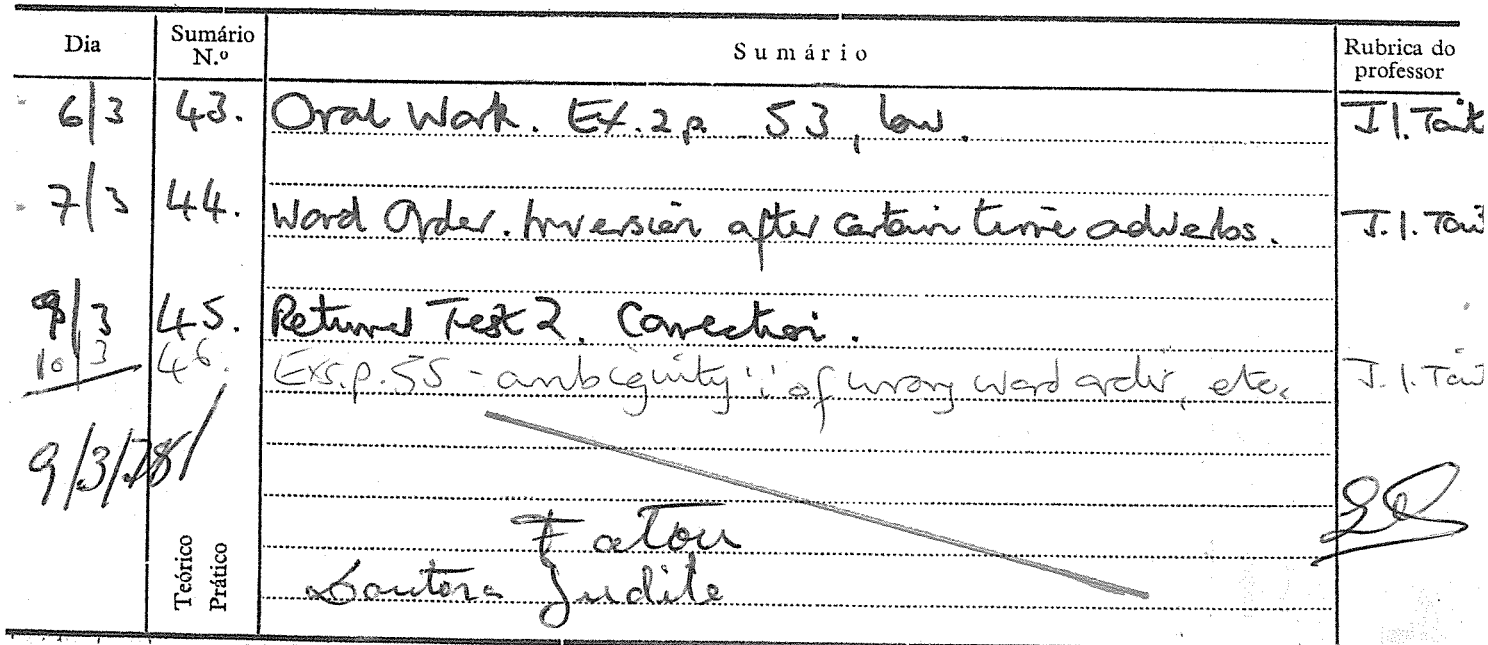 Dia Sumário N.º Sumário Rubrica do professor
6/3 43. Oral Work. Ex. 2 p. 53, J. I. Tait
7/3 44. Word Order. Inversion after certain time adverbs. J. I. Tait
9/3 45. Returned Test 2. Correction.
10/3 46. Exs. p. 55 - ambiguity of wrong word order, etc. J. I. Tait
9/3/78
Teórico
Prático
Faltou
Doutora Judite